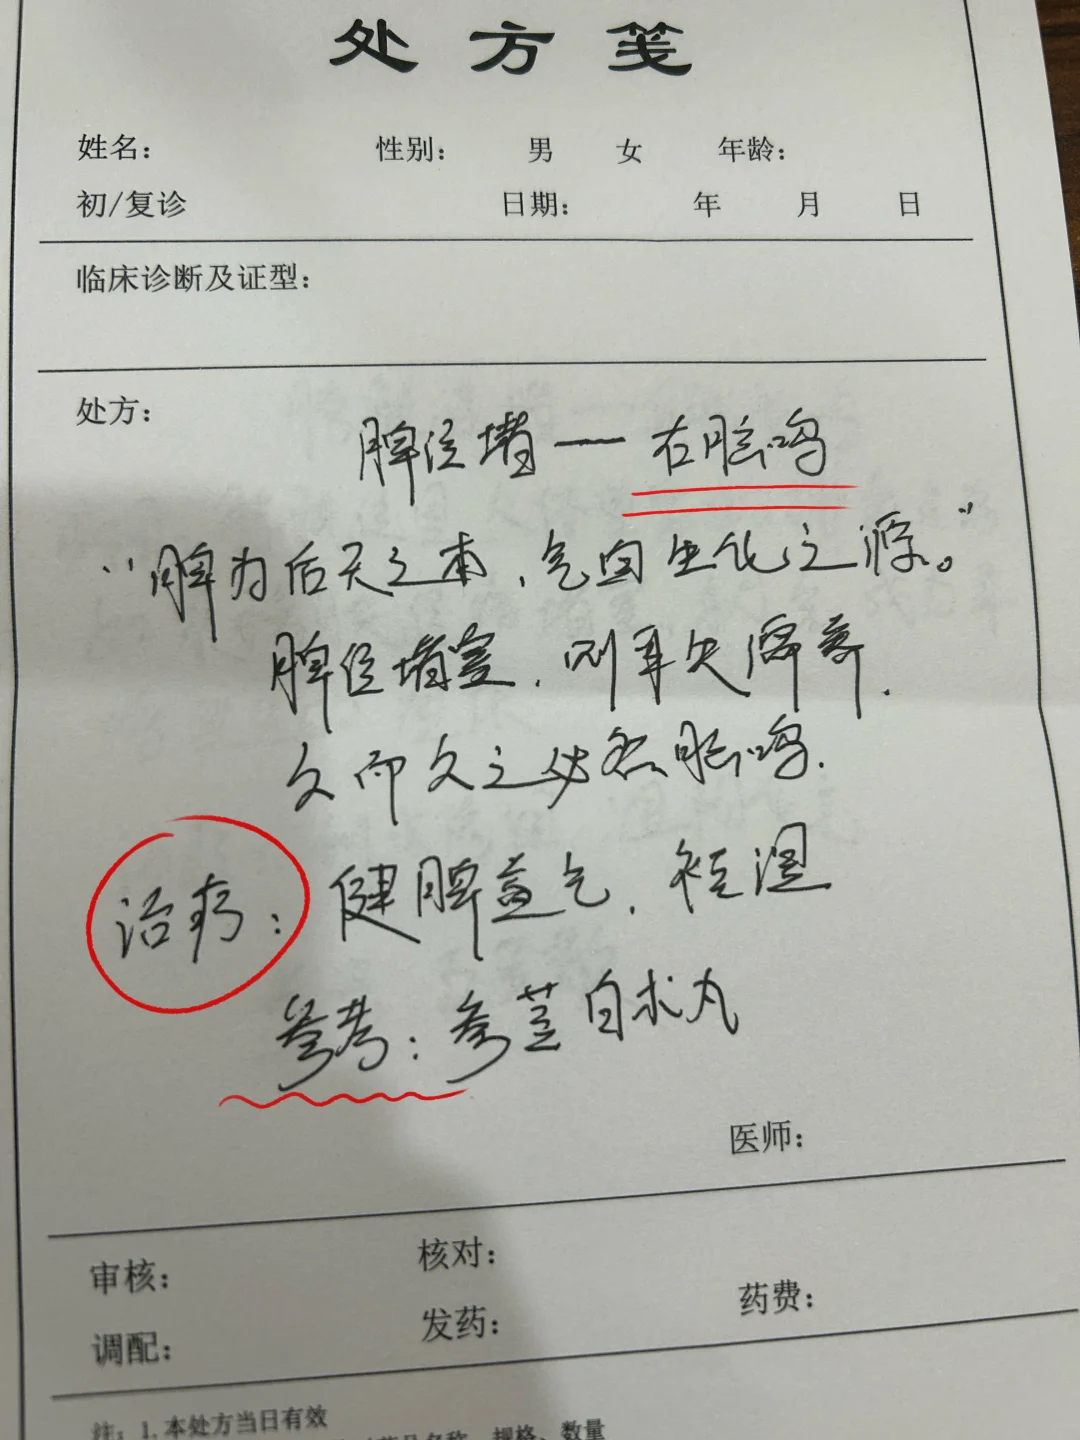 处方笺
姓名： 性别： 男 女 年龄：
初/复诊 日期： 年 月 日
临床诊断及证型：
处方：
脾经堵一右脑鸣
“脾为后天之本，气血生化之源。”
脾经堵塞，则耳失濡养，
久而久之必然脑鸣.
治疗：健脾益气，祛湿
参考：参苓白术丸
医师：
审核： 核对：
调配： 发药： 药费：
注：1.本处方当日有效
规格、数量